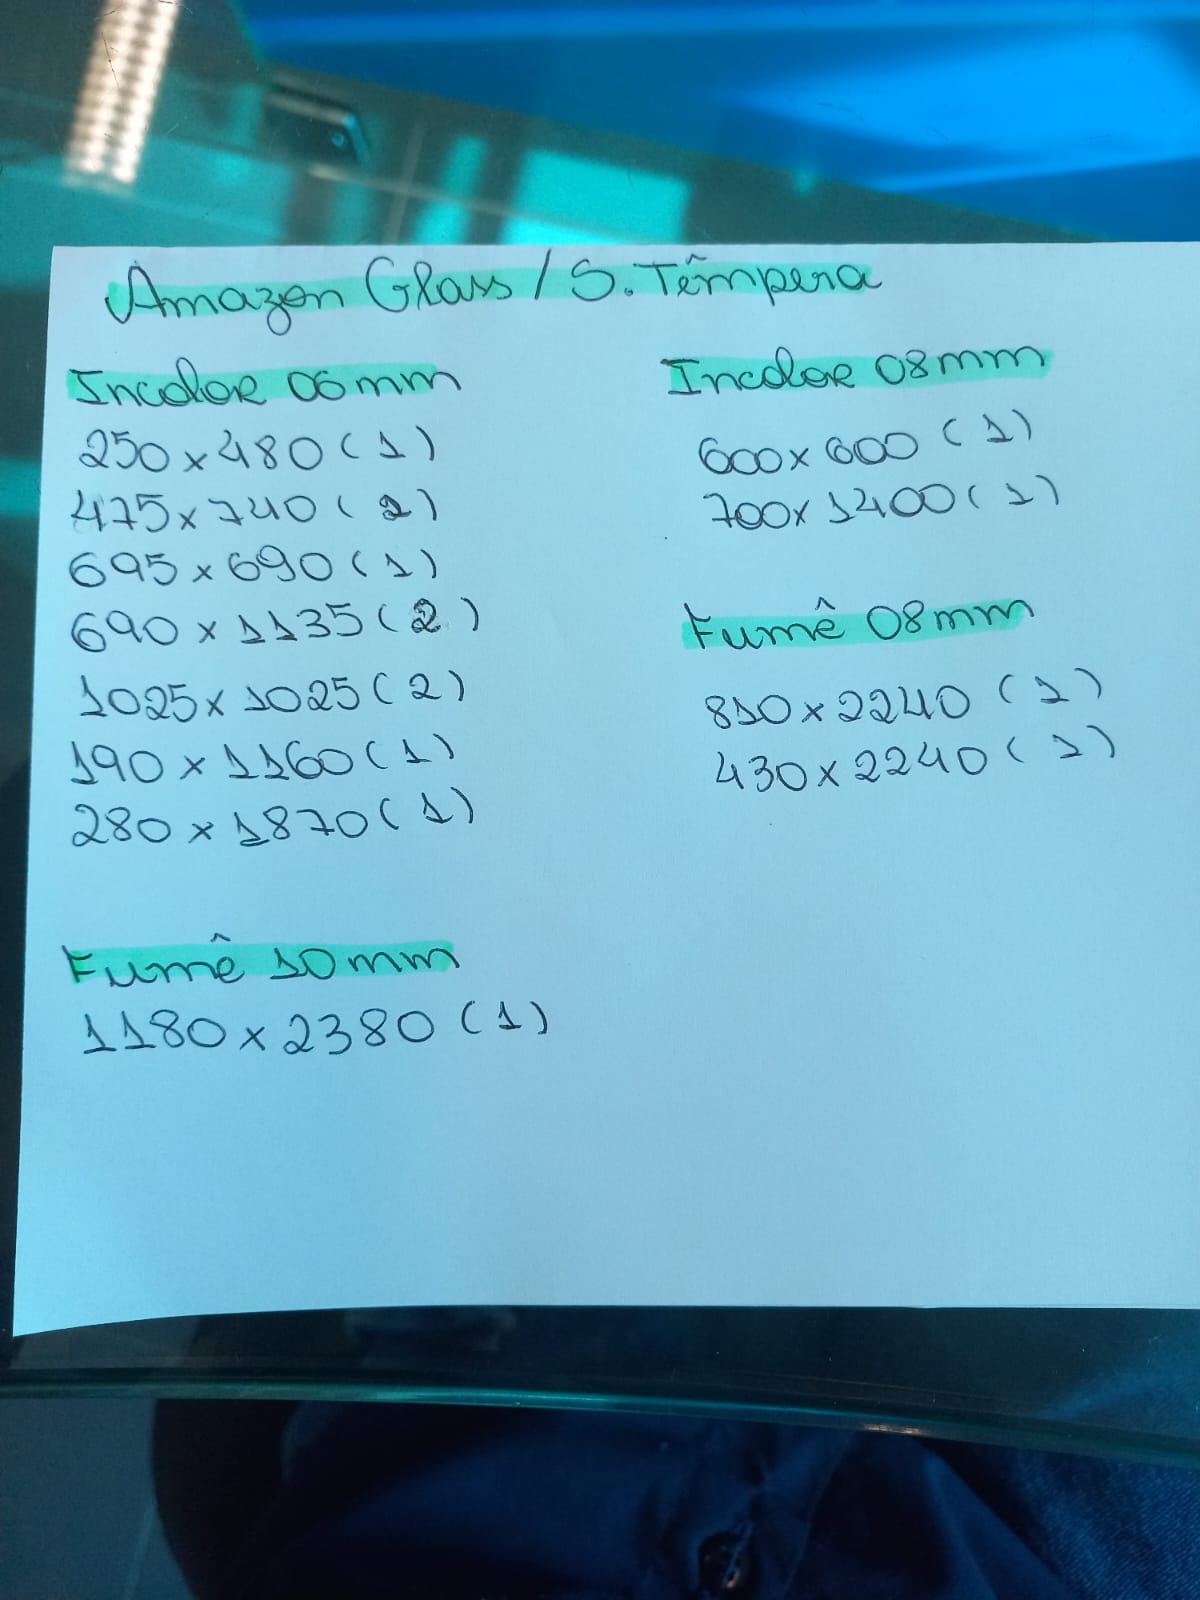 Amazon Glass / S. Têmpera
Incolor 06mm
250 x 480 (1)
475 x 740 (2)
695 x 690 (1)
690 x 1135 (2)
1025 x 1025 (2)
190 x 1160 (1)
280 x 1870 (1)
Fumê 10mm
1180 x 2380 (1)
Incolor 08mm
600 x 600 (1)
700 x 1400 (1)
Fumê 08mm
810 x 2240 (1)
430 x 2240 (1)